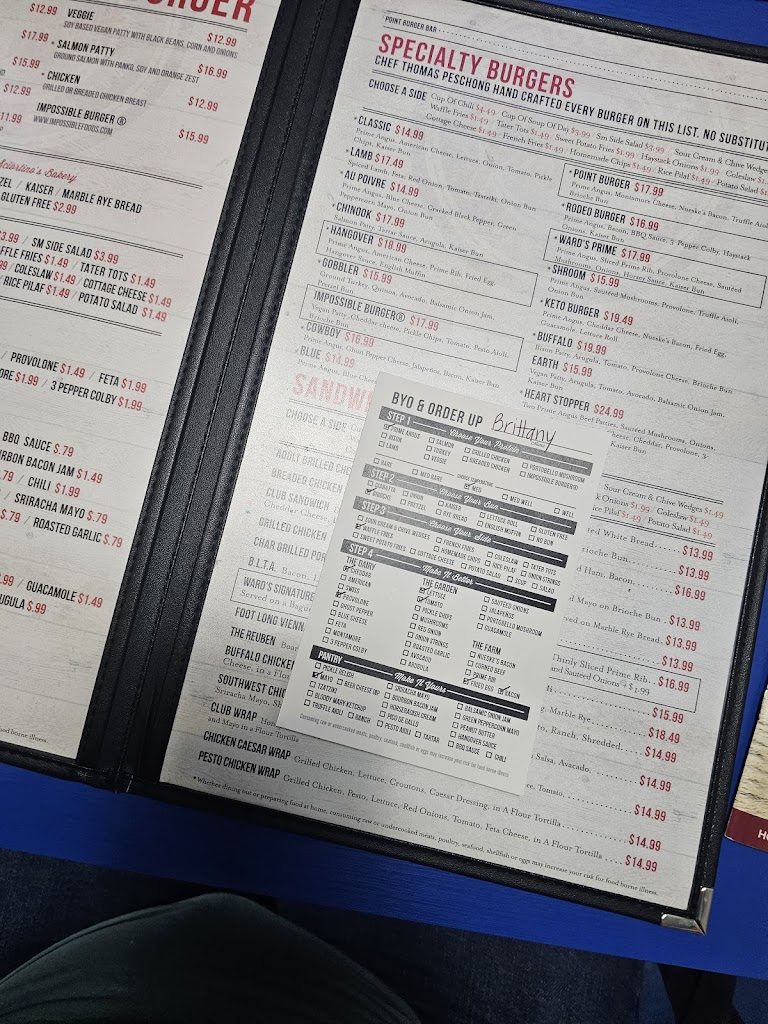 BURGER
$12.99
VEGGIE
SOY BASED VEGAN PATTY WITH BLACK BEANS, CORN AND ONIONS
$12.99
$17.99
* SALMON PATTY
GROUND SALMON WITH PANKO, SOY AND ORANGE ZEST
$16.99
$15.99
* CHICKEN
GRILLED OR BREADED CHICKEN BREAST
$12.99
$12.99
IMPOSSIBLE BURGER ®
WWW.IMPOSSIBLEFOODS.COM
$15.99
11.99
Sciortino's Bakery
ZEL / KAISER / MARBLE RYE BREAD
GLUTEN FREE $2.99
$3.99 / SM SIDE SALAD $3.99
FFLE FRIES $1.49 / TATER TOTS $1.49
/ COLESLAW $1.49 / COTTAGE CHEESE $1.49
/ RICE PILAF $1.49 / POTATO SALAD $1.49
/ PROVOLONE $1.49 / FETA $1.99
ORE $1.99 / 3 PEPPER COLBY $1.99
BBQ SAUCE $.79
RBON BACON JAM $1.49
/ CHILI $1.99
/ SRIRACHA MAYO $.79
$.79 / ROASTED GARLIC $.79
.99 / GUACAMOLE $1.49
UGULA $.99
borne illness.
POINT BURGER BAR
SPECIALTY BURGERS
CHEF THOMAS PESCHONG HAND CRAFTED EVERY BURGER ON THIS LIST. NO SUBSTITUT
CHOOSE A SIDE Cup Of Chili $4.49 · Cup Of Soup Of Day $3.99 · Sm Side Salad $3.99 · Sour Cream & Chive Wedges
Waffle Fries $1.49 · Tater Tots $1.49 · Sweet Potato Fries $1.99 · Haystack Onions $1.99 · Coleslaw $1.
Cottage Cheese $1.49 · French Fries $1.49 · Homemade Chips $1.49 · Rice Pilaf $1.49 · Potato Salad $1
* CLASSIC $14.99
Prime Angus, American Cheese, Lettuce, Onion, Tomato, Pickle
Chips, Kaiser Bun
* LAMB $17.49
Spiced Lamb, Feta, Red Onion, Tomato, Tzatziki, Onion Bun
* AU POIVRE $14.99
Prime Angus, Blue Cheese, Cracked Black Pepper, Green
Peppercorn Mayo, Onion Bun
* CHINOOK $17.99
Salmon Patty, Tartar Sauce, Arugula, Kaiser Bun
* HANGOVER $18.99
Prime Angus, American Cheese, Prime Rib, Fried Egg,
Hangover Sauce, English Muffin
* GOBBLER $15.99
Ground Turkey, Quinoa, Avocado, Balsamic Onion Jam,
Pretzel Bun
IMPOSSIBLE BURGER® $17.99
Vegan Patty, Cheddar cheese, Pickle Chips, Tomato, Pesto Aioli,
Brioche Bun
* COWBOY $16.99
Prime Angus, Ghost Pepper Cheese, Jalapeños, Bacon, Kaiser Bun
* BLUE $14.99
Prime Angus, Blue Che
* POINT BURGER $17.99
Prime Angus, Montamore Cheese, Nueske's Bacon, Truffle Aioli,
RODEO BURGER $16.99
Prime Angus, Bacon, BBQ Sauce, 3 Pepper Colby, Haystack
Onions, Kaiser Bun
* WARD'S PRIME $17.99
Prime Angus, Sliced Prime Rib, Provolone Cheese, Sautéed
Mushrooms, Onions, Horsey Sauce, Kaiser Bun
* SHROOM $15.99
Prime Angus, Sautéed Mushrooms, Provolone, Truffle Aioli,
Onion Bun
* KETO BURGER $19.49
Prime Angus, Cheddar Cheese, Nueske's Bacon, Fried Egg,
Guacamole, Lettuce Roll
* BUFFALO $19.99
Bison Patty, Arugula, Tomato, Provolone Cheese, Brioche Bun
EARTH $15.99
Vegan Patty, Arugula, Tomato, Avocado, Balsamic Onion Jam,
Kaiser Bun
* HEART STOPPER $24.99
Two Prime Angus Beef Patties, Sautéed Mushrooms, Onions,
heese, Cheddar, Provolone, 3-
Kaiser Bun
SANDW
CHOOSE A SIDE
Sour Cream & Chive Wedges $1.49
Onions $1.99 · Coleslaw $1.49
Rice Pilaf $1.49 · Potato Salad $1.49
ADULT GRILLED CHE
ted White Bread. $13.99
BREADED CHICKEN
rioche Bun $13.99
CLUB SANDWICH
Cheddar Chee
d Ham, Bacon, $16.99
GRILLED CHICKEN
Mayo on Brioche Bun $13.99
CHAR GRILLED POR
ved on Marble Rye Bread. $13.99
B.L.T.A. Bacon, $13.99
WARD'S SIGNATURE
Served on a Bague
Thinly Sliced Prime Rib $16.99
and Sautéed Onions + $1.99
FOOT LONG VIENN
$15.99
THE REUBEN
g, Marble Rye $18.49
BUFFALO CHICKEN
Cheese, in a Flo
to, Ranch, Shredded $14.99
SOUTHWEST CHIC
Sriracha Mayo, S
Salsa, Avocado, $14.99
CLUB WRAP
and Mayo in a Flour Tortilla
ce, Tomato, $14.99
CHICKEN CAESAR WRAP Grilled Chicken, Lettuce, Croutons, Caesar Dressing, in A Flour Tortilla $14.99
PESTO CHICKEN WRAP Grilled Chicken, Pesto, Lettuce, Red Onions, Tomato, Feta Cheese, in A Flour Tortilla $14.99
* Whether dining out or preparing food at home, consuming raw or undercooked meats, poultry, seafood, shellfish or eggs may increase your risk for food borne illness.
BYO & ORDER UP Brittany
STEP 1 Choose Your Protein
PRIME ANGUS
BISON
LAMB
SALMON
TURKEY
VEGGIE
GRILLED CHICKEN
BREADED CHICKEN
PORTOBELLO MUSHROOM
IMPOSSIBLE BURGER(V)
CHOOSE TEMPERATURE
RARE MED RARE MED MED WELL WELL
STEP 2 Choose Your Bun
CIABATTA
BRIOCHE
ONION
PRETZEL
KAISER
RYE BREAD
LETTUCE ROLL
ENGLISH MUFFIN
GLUTEN FREE
NO BUN
STEP 3 Choose Your Side
SOUR CREAM & CHIVE WEDGES
WAFFLE FRIES
SWEET POTATO FRIES
FRENCH FRIES
HOMEMADE CHIPS
COTTAGE CHEESE
COLESLAW
RICE PILAF
POTATO SALAD
TATER TOTS
ONION STRINGS
SOUP
SALAD
STEP 4 Make It Better
THE DAIRY
CHEDDAR
AMERICAN
SWISS
PROVOLONE
GHOST PEPPER
BLUE CHEESE
FETA
MONTAMORE
3 PEPPER COLBY
THE GARDEN
LETTUCE
TOMATO
PICKLE CHIPS
MUSHROOMS
RED ONION
ONION STRINGS
ROASTED GARLIC
AVOCADO
ARUGULA
SAUTEED ONIONS
JALAPENOS
PORTOBELLO MUSHROOM
GUACAMOLE
THE FARM
NUESKE'S BACON
CORNED BEEF
PRIME RIB
FRIED EGG
BACON
PANTRY Make It Yours
PICKLE RELISH
MAYO
BEER CHEESE DIP
TZATZIKI
BLOODY MARY KETCHUP
TRUFFLE AIOLI
RANCH
SRIRACHA MAYO
BOURBON BACON JAM
HORSERADISH CREAM
PICO DE GALLO
PESTO AIOLI
TARTAR
BALSAMIC ONION JAM
GREEN PEPPERCORN MAYO
PEANUT BUTTER
HANGOVER SAUCE
BBQ SAUCE
CHILI
Consuming raw or undercooked meats, poultry, seafood, shellfish or eggs may increase your risk for food borne illness